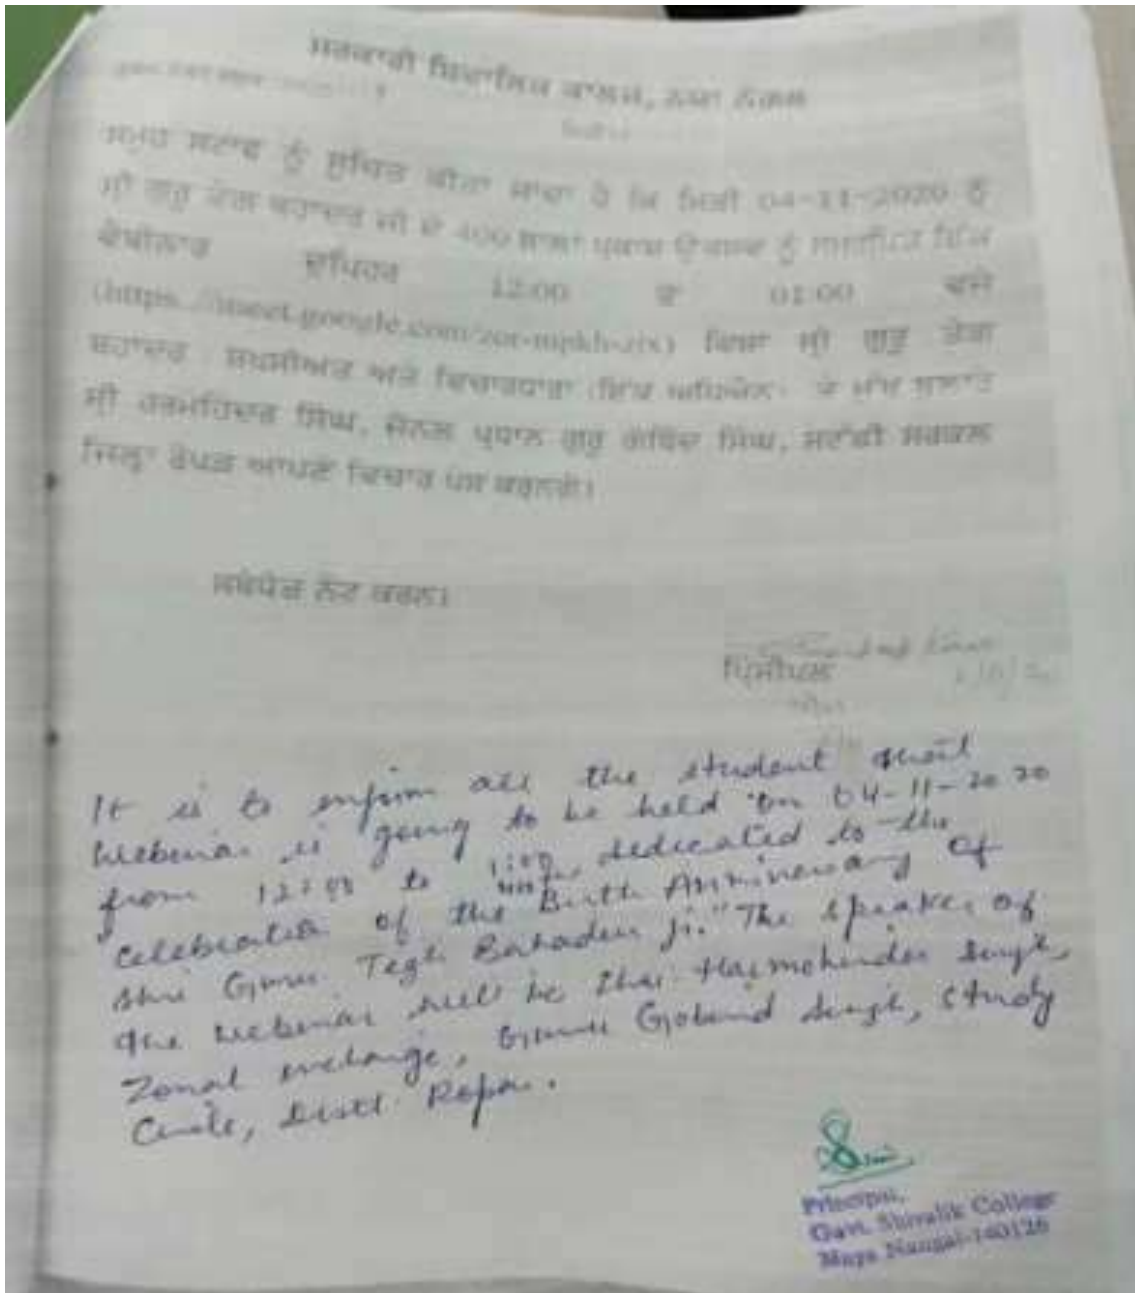 ਸਰਕਾਰੀ ਸ਼ਿਵਾਲਿਕ ਕਾਲਜ, ਨਯਾ ਨੰਗਲ
ਸਮੂਹ ਸਟਾਫ ਨੂੰ ਸੂਚਿਤ ਕੀਤਾ ਜਾਂਦਾ ਹੈ ਕਿ ਮਿਤੀ 04-11-2020 ਨੂੰ
ਸ੍ਰੀ ਗੁਰੂ ਤੇਗ ਬਹਾਦਰ ਜੀ ਦੇ 400 ਸਾਲਾ ਪ੍ਰਕਾਸ਼ ਉਤਸਵ ਨੂੰ ਸਮਰਪਿਤ ਇੱਕ
ਵੈਬੀਨਾਰ ਦੁਪਿਹਰ 12:00 ਤੋਂ 01:00 ਵਜੇ
ਵਿਸ਼ਾ ਸ੍ਰੀ ਗੁਰੂ ਤੇਗ
ਬਹਾਦਰ ਸ਼ਖਸੀਅਤ ਅਤੇ ਵਿਚਾਰਧਾਰਾ (ਇੱਕ ਅਧਿਐਨ)
ਸ੍ਰੀ ਹਰਮਹਿੰਦਰ ਸਿੰਘ, ਜ਼ੋਨਲ ਪ੍ਰਧਾਨ ਗੁਰੂ ਗੋਬਿੰਦ ਸਿੰਘ, ਸਟੱਡੀ ਸਰਕਲ
ਜਿਲ੍ਹਾ ਰੋਪੜ ਆਪਣੇ ਵਿਚਾਰ ਪੇਸ਼ ਕਰਨਗੇ।
ਨੋਟ ਕਰਨ।
ਪ੍ਰਿੰਸੀਪਲ
It is to inform all the student that
Webinar is going to be held on 04-11-2020
from 12:00 to 1:00 dedicated to the
"Celebration of the Birth Anniversary of
Shri Guru Tegh Bahadur Ji." The speaker of
the webinar will be Shri Harmohinder Singh,
Zonal incharge, Guru Gobind Singh, Study
Circle, Distt. Ropar.
Principal,
Govt. Shivalik College
Naya Nangal-140126